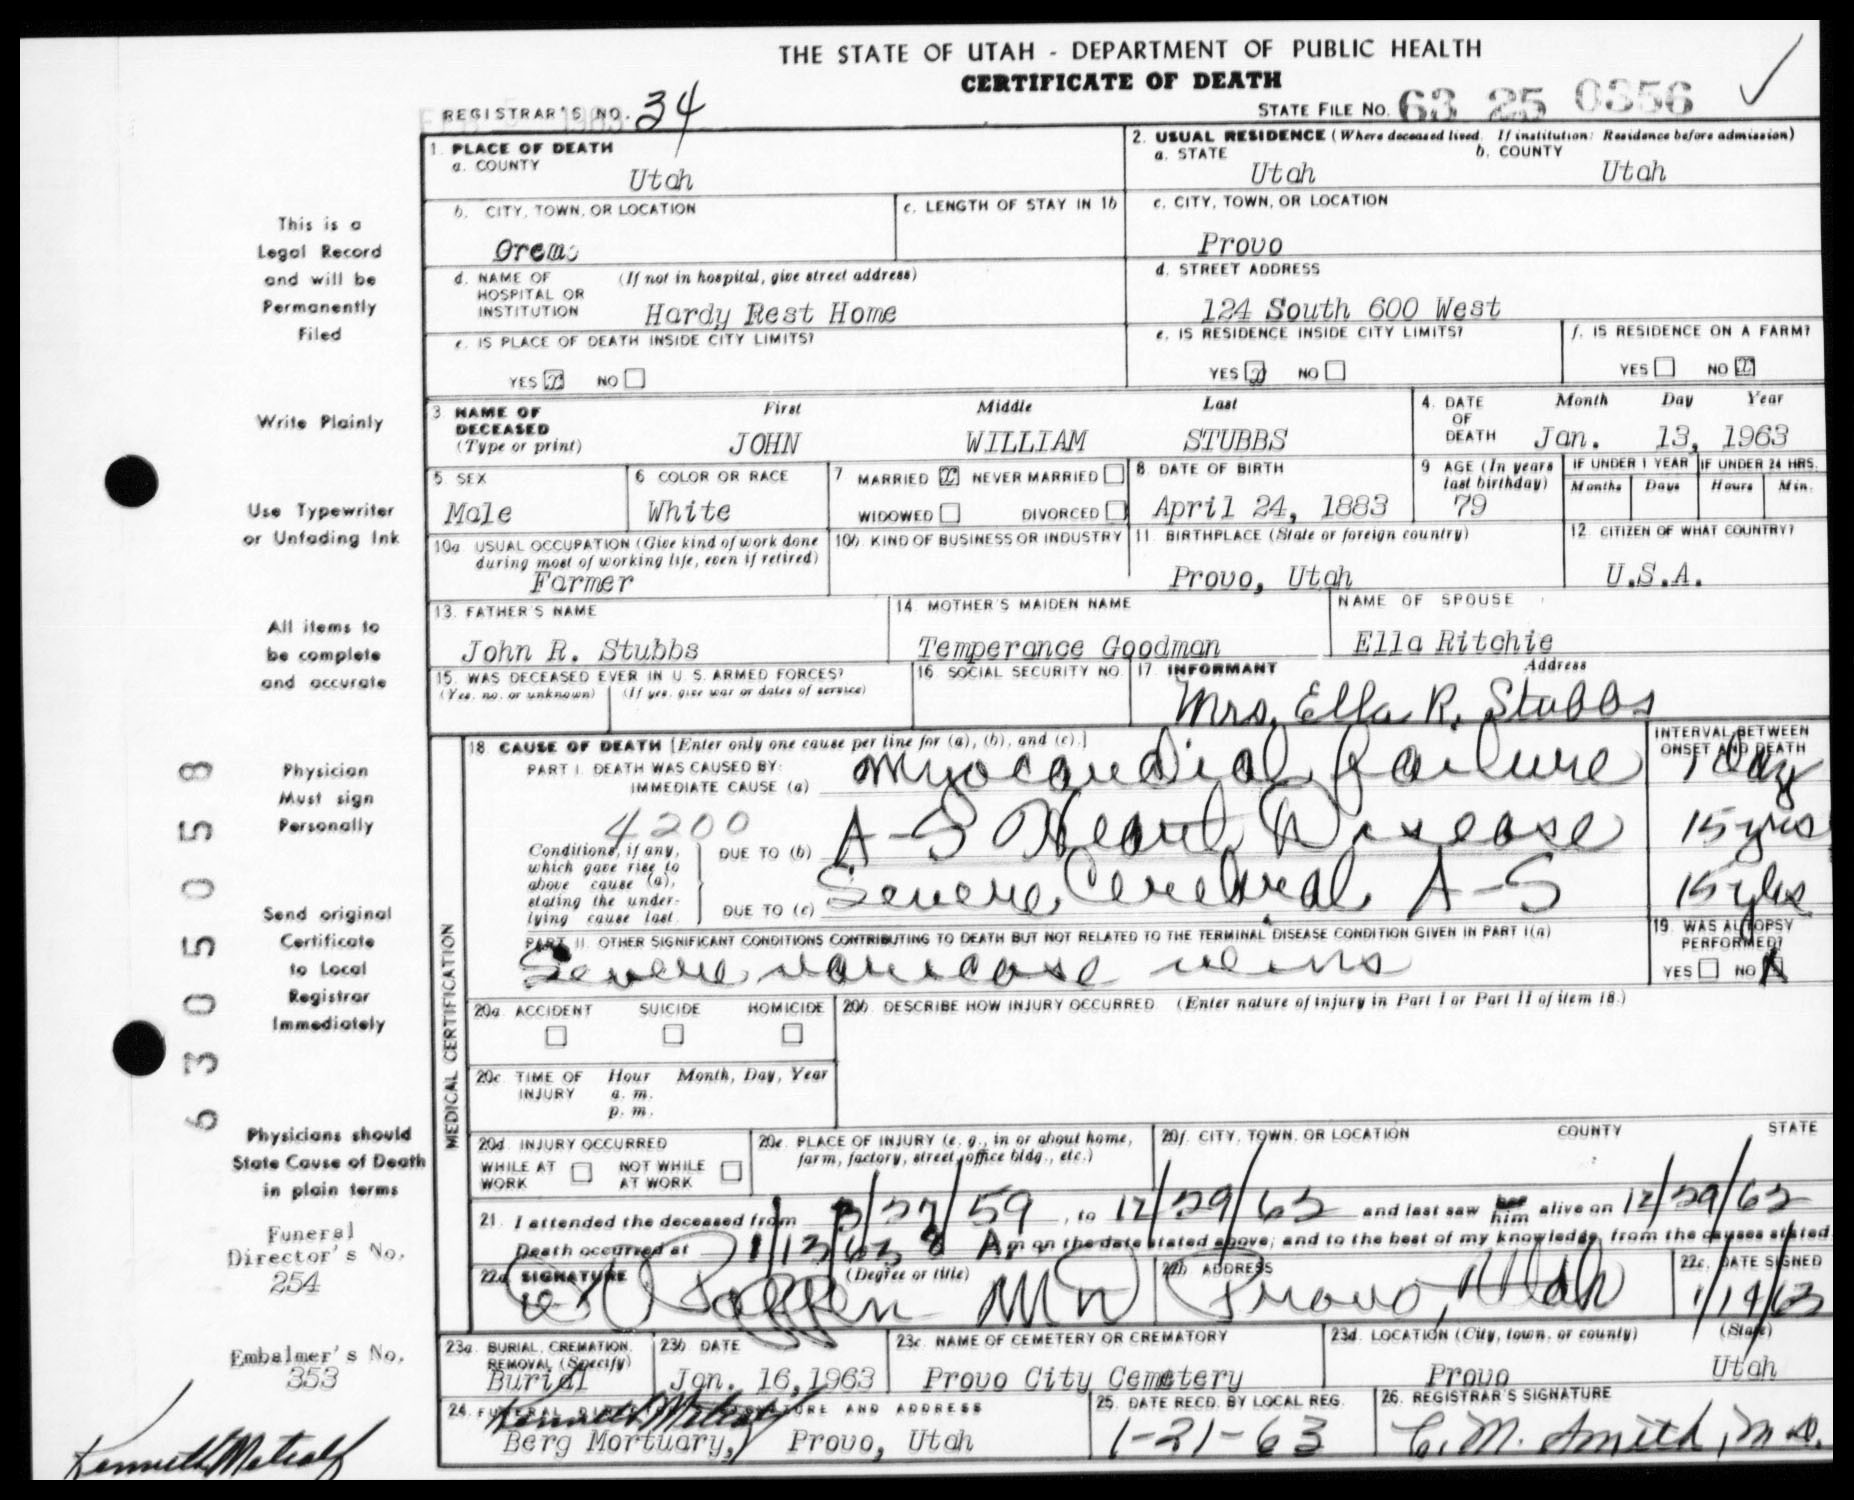 THE STATE OF UTAH - DEPARTMENT OF PUBLIC HEALTH
CERTIFICATE OF DEATH
REGISTRAR'S NO. 34
STATE FILE NO. 63 25 0356
1. PLACE OF DEATH
a. COUNTY
Utah
2. USUAL RESIDENCE (Where deceased lived. If institution: Residence before admission)
a. STATE
Utah
b. COUNTY
Utah
b. CITY, TOWN, OR LOCATION
Orem
c. LENGTH OF STAY IN 1b
c. CITY, TOWN, OR LOCATION
Provo
d. NAME OF HOSPITAL OR INSTITUTION
(If not in hospital, give street address)
Hardy Rest Home
d. STREET ADDRESS
124 South 600 West
e. IS PLACE OF DEATH INSIDE CITY LIMITS?
YES x NO
e. IS RESIDENCE INSIDE CITY LIMITS?
YES x NO
f. IS RESIDENCE ON A FARM?
YES NO x
3. NAME OF DECEASED
(Type or print)
First Middle Last
JOHN WILLIAM STUBBS
4. DATE OF DEATH
Month Day Year
Jan. 13, 1963
5. SEX
Male
6 COLOR OR RACE
White
7 MARRIED x NEVER MARRIED
WIDOWED DIVORCED
8 DATE OF BIRTH
April 24, 1883
9 AGE (In years last birthday)
79
IF UNDER 1 YEAR
Months Days
IF UNDER 24 HRS.
Hours Min.
10a USUAL OCCUPATION (Give kind of work done during most of working life, even if retired)
Farmer
10b. KIND OF BUSINESS OR INDUSTRY
11. BIRTHPLACE (State or foreign country)
Provo, Utah
12 CITIZEN OF WHAT COUNTRY?
U.S.A.
13. FATHER'S NAME
John R. Stubbs
14. MOTHER'S MAIDEN NAME
Temperance Goodman
NAME OF SPOUSE
Ella Ritchie
15. WAS DECEASED EVER IN U. S. ARMED FORCES?
(Yes, no, or unknown) (If yes, give war or dates of service)
16. SOCIAL SECURITY NO.
17. INFORMANT Address
Mrs. Ella R. Stubbs
MEDICAL CERTIFICATION
18 CAUSE OF DEATH [Enter only one cause per line for (a), (b), and (c).]
PART I. DEATH WAS CAUSED BY:
IMMEDIATE CAUSE (a) Myocardial failure
INTERVAL BETWEEN ONSET AND DEATH
1 Day
4200
Conditions, if any, which gave rise to above cause (a), stating the underlying cause last.
DUE TO (b) A-S Heart Disease 15 yrs
DUE TO (c) Severe Cerebral A-S 15 yrs
PART II. OTHER SIGNIFICANT CONDITIONS CONTRIBUTING TO DEATH BUT NOT RELATED TO THE TERMINAL DISEASE CONDITION GIVEN IN PART I(a)
Severe varicose veins
19. WAS AUTOPSY PERFORMED?
YES NO X
20a. ACCIDENT SUICIDE HOMICIDE
20b. DESCRIBE HOW INJURY OCCURRED (Enter nature of injury in Part I or Part II of item 18.)
20c. TIME OF INJURY
Hour Month, Day, Year
a. m.
p. m.
20d. INJURY OCCURRED
WHILE AT WORK NOT WHILE AT WORK
20e. PLACE OF INJURY (e. g., in or about home, farm, factory, street, office bldg., etc.)
20f. CITY, TOWN, OR LOCATION COUNTY STATE
21. I attended the deceased from 3/27/59, to 12/29/62 and last saw him alive on 12/29/62
Death occurred at 1/13/63 8 A m on the date stated above; and to the best of my knowledge, from the causes stated
22a. SIGNATURE (Degree or title)
MD
22b. ADDRESS
Provo, Utah
22c. DATE SIGNED
1/19/63
23a. BURIAL, CREMATION, REMOVAL (Specify)
Burial
23b DATE
Jan. 16, 1963
23c. NAME OF CEMETERY OR CREMATORY
Provo City Cemetery
23d. LOCATION (City, town, or county) (State)
Provo Utah
24. FUNERAL DIRECTOR'S SIGNATURE AND ADDRESS
Kenneth Metcalf
Berg Mortuary, Provo, Utah
25. DATE RECD. BY LOCAL REG.
1-21-63
26. REGISTRAR'S SIGNATURE
C. M. Smith, M.D.
This is a
Legal Record
and will be
Permanently
Filed
Write Plainly
Use Typewriter
or Unfading Ink
All items to
be complete
and accurate
Physician
Must sign
Personally
Send original
Certificate
to Local
Registrar
Immediately
Physicians should
State Cause of Death
in plain terms
Funeral
Director's No.
254
Embalmer's No.
353
Kenneth Metcalf
63050508